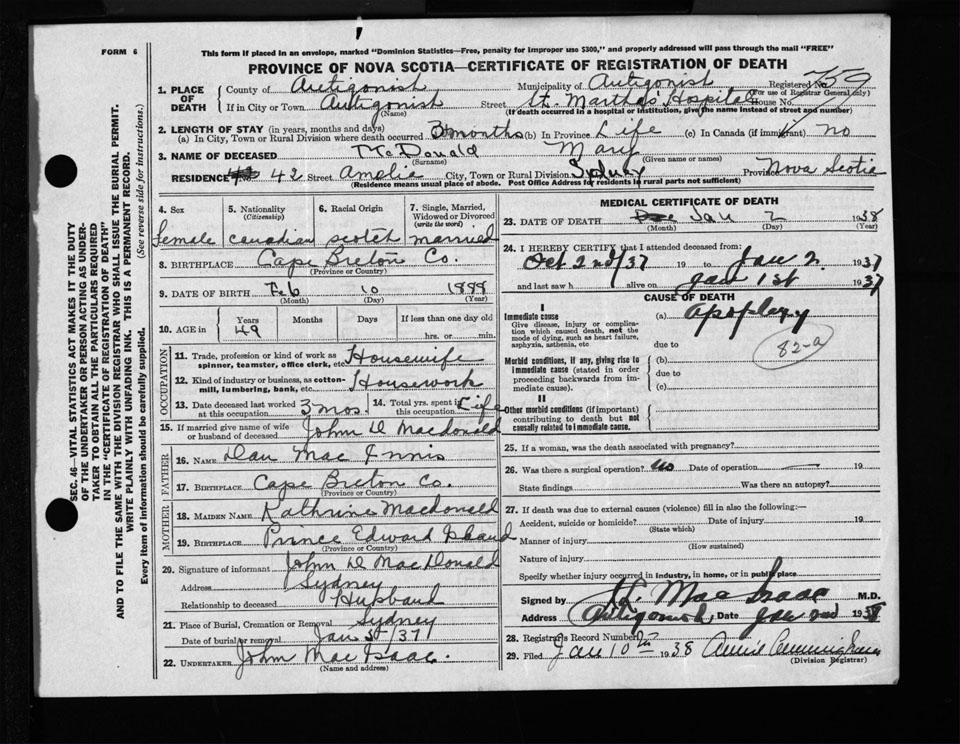 FORM 6
This form if placed in an envelope, marked "Dominion Statistics—Free, penalty for improper use $300," and properly addressed will pass through the mail "FREE"
PROVINCE OF NOVA SCOTIA—CERTIFICATE OF REGISTRATION OF DEATH
SEC. 46—VITAL STATISTICS ACT MAKES IT THE DUTY
OF THE UNDERTAKER OR PERSON ACTING AS UNDER-
TAKER TO OBTAIN ALL THE PARTICULARS REQUIRED
IN THE "CERTIFICATE OF REGISTRATION OF DEATH"
AND TO FILE THE SAME WITH THE DIVISION REGISTRAR WHO SHALL ISSUE THE BURIAL PERMIT.
WRITE PLAINLY WITH UNFADING INK. THIS IS A PERMANENT RECORD.
Every item of information should be carefully supplied. (See reverse side for instructions.)
1. PLACE OF DEATH County of Antigonish Municipality of Antigonish Registered No. 759
(For use of Registrar General only)
If in City or Town Antigonish Street St. Martha's Hospital House No.
(Name) (If death occurred in a hospital or institution, give the name instead of street and number)
2. LENGTH OF STAY (in years, months and days)
(a) In City, Town or Rural Division where death occurred 3 months (b) In Province Life (c) In Canada (if immigrant) no
3. NAME OF DECEASED McDonald Mary
(Surname) (Given name or names)
RESIDENCE No. 42 Street Amelia City, Town or Rural Division Sydney Province Nova Scotia
(Residence means usual place of abode. Post Office Address for residents in rural parts not sufficient)
4. Sex 5. Nationality (Citizenship) 6. Racial Origin 7. Single, Married, Widowed or Divorced (write the word)
female canadian scotch married
8. BIRTHPLACE Cape Breton Co.
(Province or Country)
9. DATE OF BIRTH Feb 10 1888
(Month) (Day) (Year)
10. AGE in Years Months Days If less than one day old
49 hrs. or min.
OCCUPATION
11. Trade, profession or kind of work as spinner, teamster, office clerk, etc. Housewife
12. Kind of industry or business, as cotton-mill, lumbering, bank, etc. Housework
13. Date deceased last worked at this occupation 3 mos. 14. Total yrs. spent in this occupation Life
15. If married give name of wife or husband of deceased John D Macdonald
FATHER
16. NAME Dan Mac Innis
17. BIRTHPLACE Cape Breton Co.
(Province or Country)
MOTHER
18. MAIDEN NAME Kathrine Macdonald
19. BIRTHPLACE Prince Edward Island
(Province or Country)
20. Signature of informant John D MacDonald
Address Sydney
Relationship to deceased Husband
21. Place of Burial, Cremation or Removal Sydney
Date of burial or removal Jan 5/37
22. UNDERTAKER John Mac Isaac.
(Name and address)
MEDICAL CERTIFICATE OF DEATH
23. DATE OF DEATH Jan 2 1938
(Month) (Day) (Year)
24. I HEREBY CERTIFY that I attended deceased from:
Oct 2nd/37 19 to Jan 2. 1937
and last saw h alive on Jan 1st 1937
CAUSE OF DEATH
I
Immediate cause (a) Apoplexy
Give disease, injury or complication which caused death, not the mode of dying, such as heart failure, asphyxia, asthenia, etc
due to
82-a
Morbid conditions, if any, giving rise to immediate cause (stated in order proceeding backwards from immediate cause).
(b)
due to
(c)
II
Other morbid conditions (if important) contributing to death but not causally related to immediate cause.
25. If a woman, was the death associated with pregnancy?
26. Was there a surgical operation? No Date of operation — 19
State findings Was there an autopsy?
27. If death was due to external causes (violence) fill in also the following:—
Accident, suicide or homicide? Date of injury 19
(State which)
Manner of injury
(How sustained)
Nature of injury
Specify whether injury occurred in industry, in home, or in public place
Signed by Mac Isaac M.D.
Address Antigonish, Date Jan 2nd 1938
28. Registrar's Record Number
29. Filed Jan 10th 1938 Annie Cunningham
(Division Registrar)